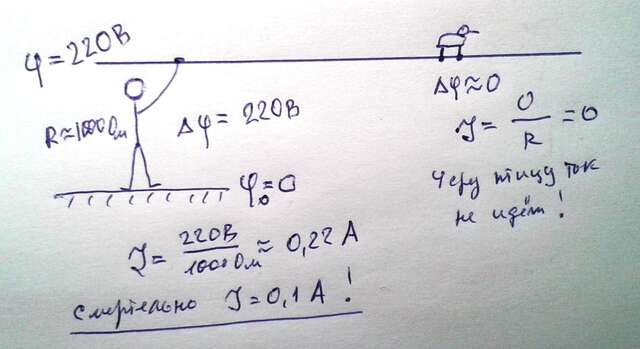 φ = 220В
R ≈ 1000 Ом
Δφ = 220В
φ₀ = 0
J = 220В / 1000 Ом ≈ 0,22 А
смертельно J = 0,1 А !
Δφ ≈ 0
J = 0 / R = 0
Через птицу ток
не идёт!